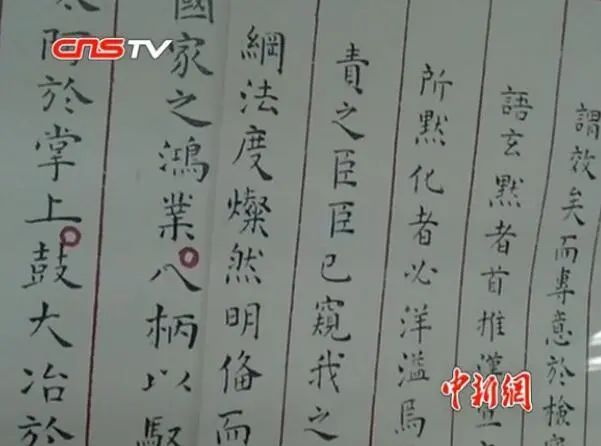 CNSTV
謂效矣而專意於檢
語玄默者首推漢
所默化者必洋溢焉
責之臣臣已窺我之
綱法度燦然明俻而
國家之鴻業八柄以馭
阿於掌上鼓大冶於
中新網